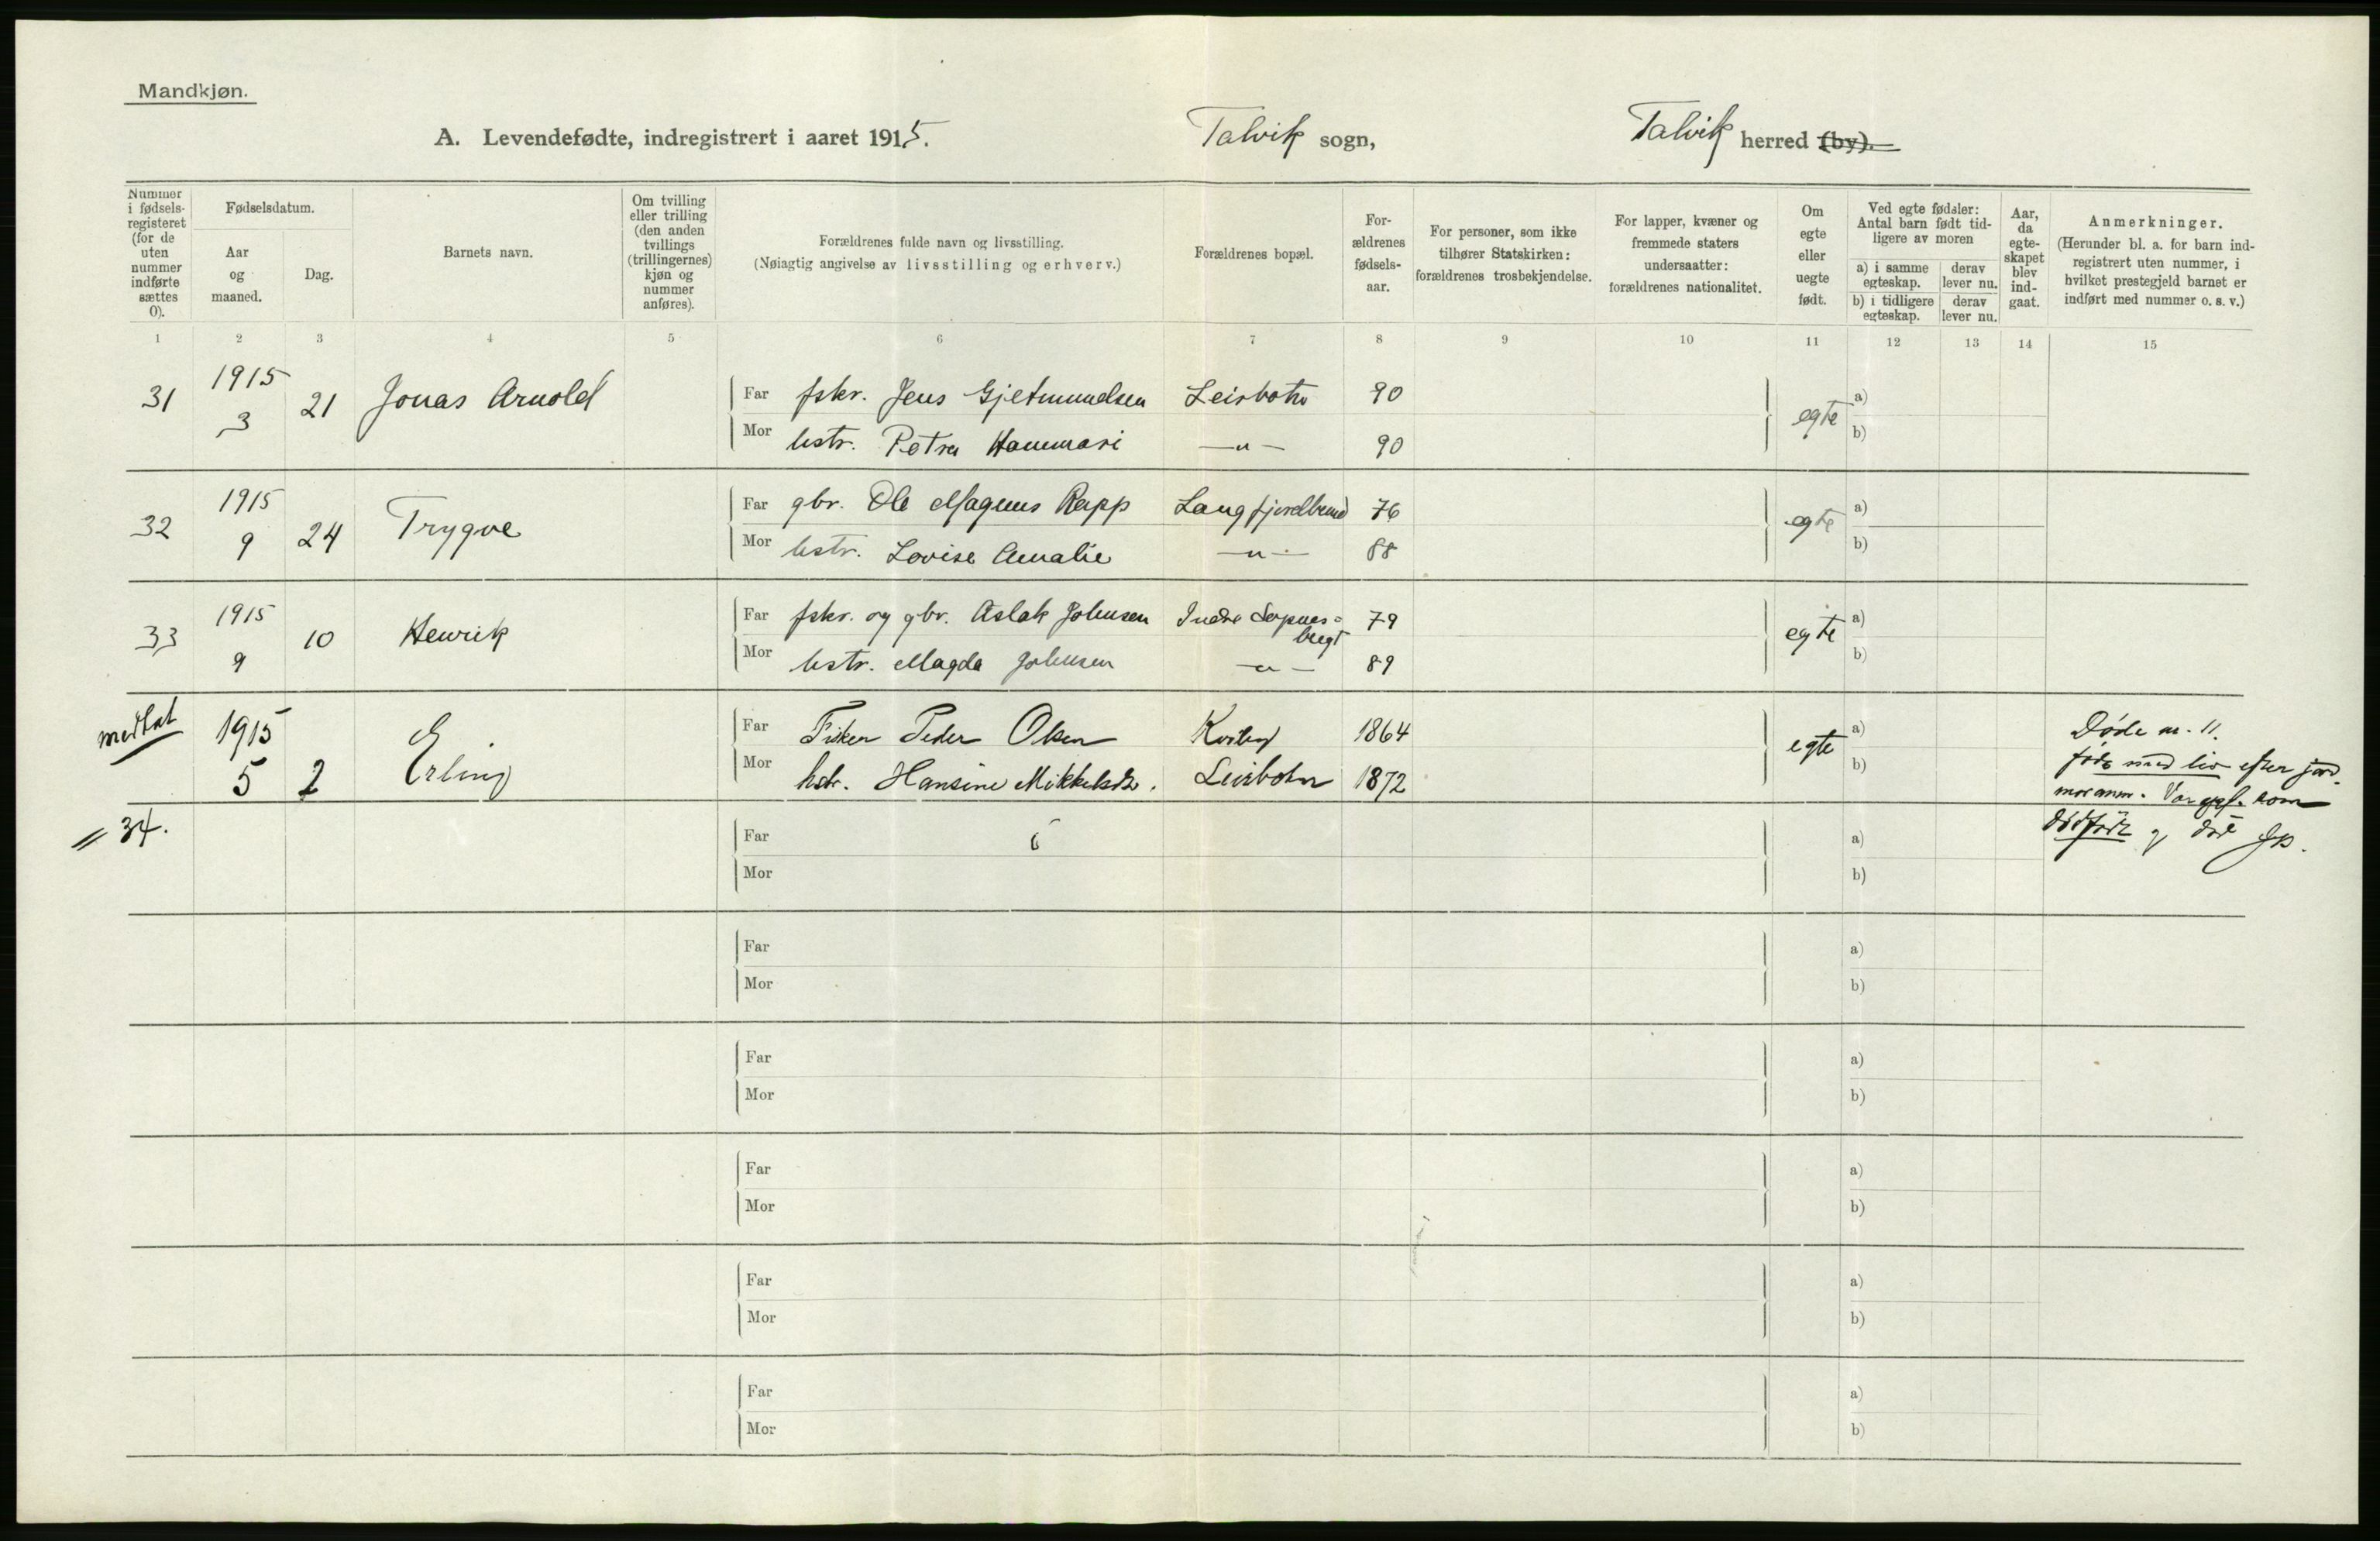 Mandkjøn.
A. Levendefødte, indregistrert i aaret 1915. Talvik sogn, Talvik herred (by).
Nummer i fødsels-registeret (for de uten nummer indførte sættes 0).
Fødselsdatum.
Aar og maaned.
Dag.
Barnets navn.
Om tvilling eller trilling (den anden tvillings (trillingernes) kjøn og nummer anføres).
Forældrenes fulde navn og livsstilling.
(Nøiagtig angivelse av livsstilling og erhverv.)
Forældrenes bopæl.
For-ældrenes fødsels-aar.
For personer, som ikke tilhører Statskirken: forældrenes trosbekjendelse.
For lapper, kvæner og fremmede staters undersaatter: forældrenes nationalitet.
Om egte eller uegte født.
Ved egte fødsler: Antal barn født tid-ligere av moren
a) i samme egteskap.
derav lever nu.
b) i tidligere egteskap.
derav lever nu.
Aar, da egte-skapet blev ind-gaat.
Anmerkninger.
(Herunder bl. a. for barn ind-registrert uten nummer, i hvilket prestegjeld barnet er indført med nummer o. s. v.)
1 2 3 4 5 6 7 8 9 10 11 12 13 14 15
31 1915 3 21 Jonas Arnold
Far fskr. Jens Gjetmundsen Leirbotn 90 egte a)
Mor hstr. Petra Hammari —"— 90 b)
32 1915 9 24 Trygve
Far gbr. Ole Magnus Rapp Langfjordbund 76 egte a)
Mor hstr. Lovise Amalie —"— 88 b)
33 1915 9 10 Henrik
Far fskr. og gbr. Aslak Johnsen Indre Sopnes-bugt 79 egte a)
Mor hstr. Magda Johnsen —"— 89 b)
medtat 1915 5 2 Erling
Far Fisker Peder Olsen 1864 egte a)
Mor hstr. Hansine Mikkelsdtr. Leirbotn 1872 b)
Døde nr. 11.
født med liv efter jord-
moranm. Var opf. som
dødfødt og død
= 34.
Far a)
Mor b)
Far a)
Mor b)
Far a)
Mor b)
Far a)
Mor b)
Far a)
Mor b)
Far a)
Mor b)